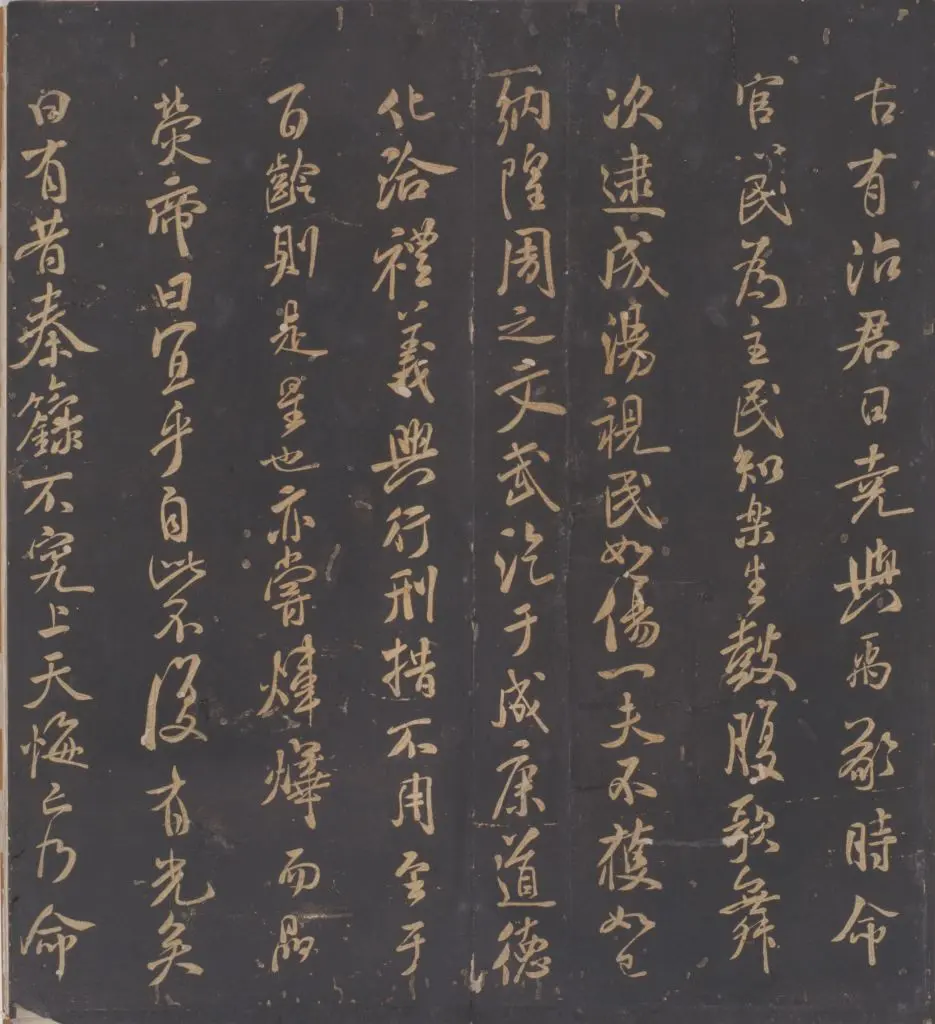 古有治君曰堯與禹敬時命
官以民為主民知樂生鼓腹歌舞
次逮成湯視民如傷一夫不獲如己
納隍周之文武訖于成康道德
化洽禮義興行刑措不用至于
百齡則是星也亦嘗煒燁而晶
熒帝曰宜乎自此不復有光矣
曰有昔秦籙不究上天悔乃命